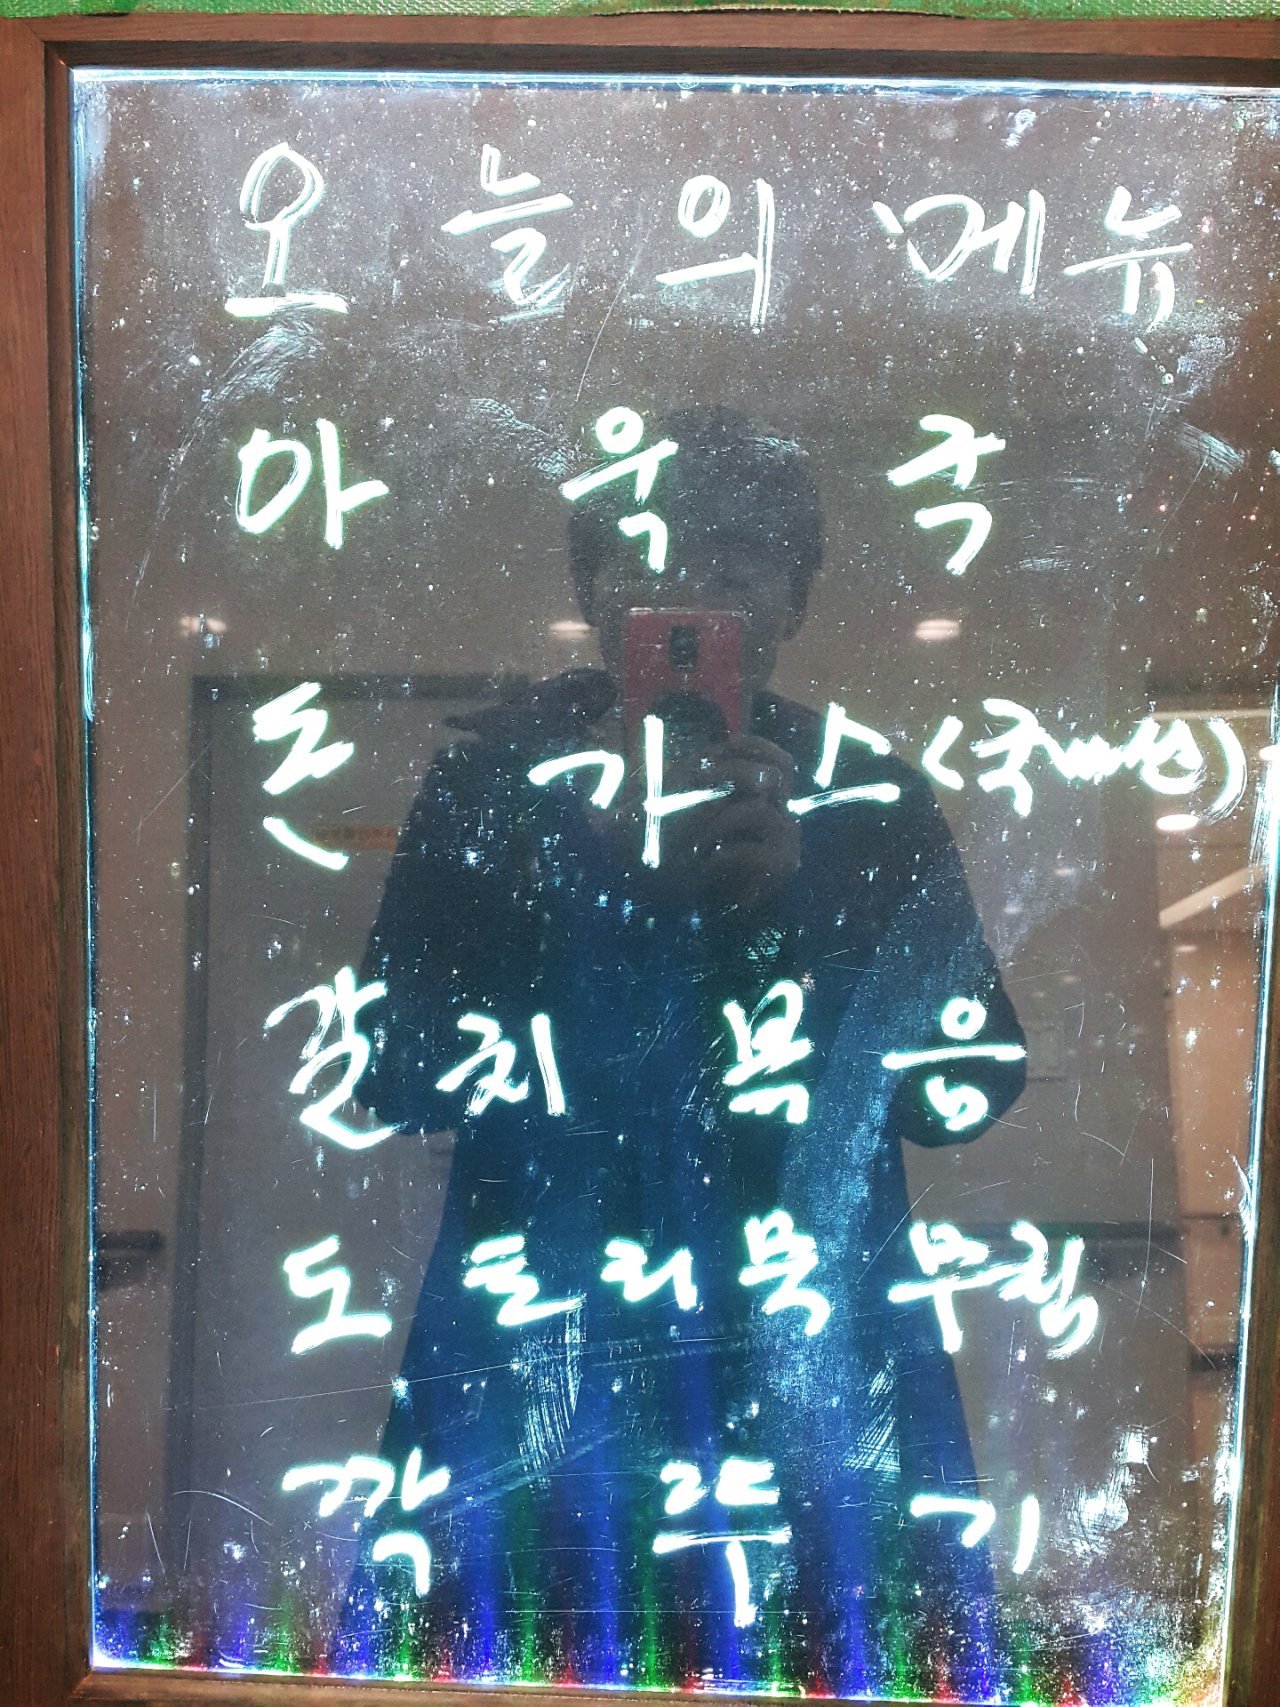 오늘의 메뉴
아욱국
돈가스(국내산)
갈치볶음
도토리묵 무침
깍두기